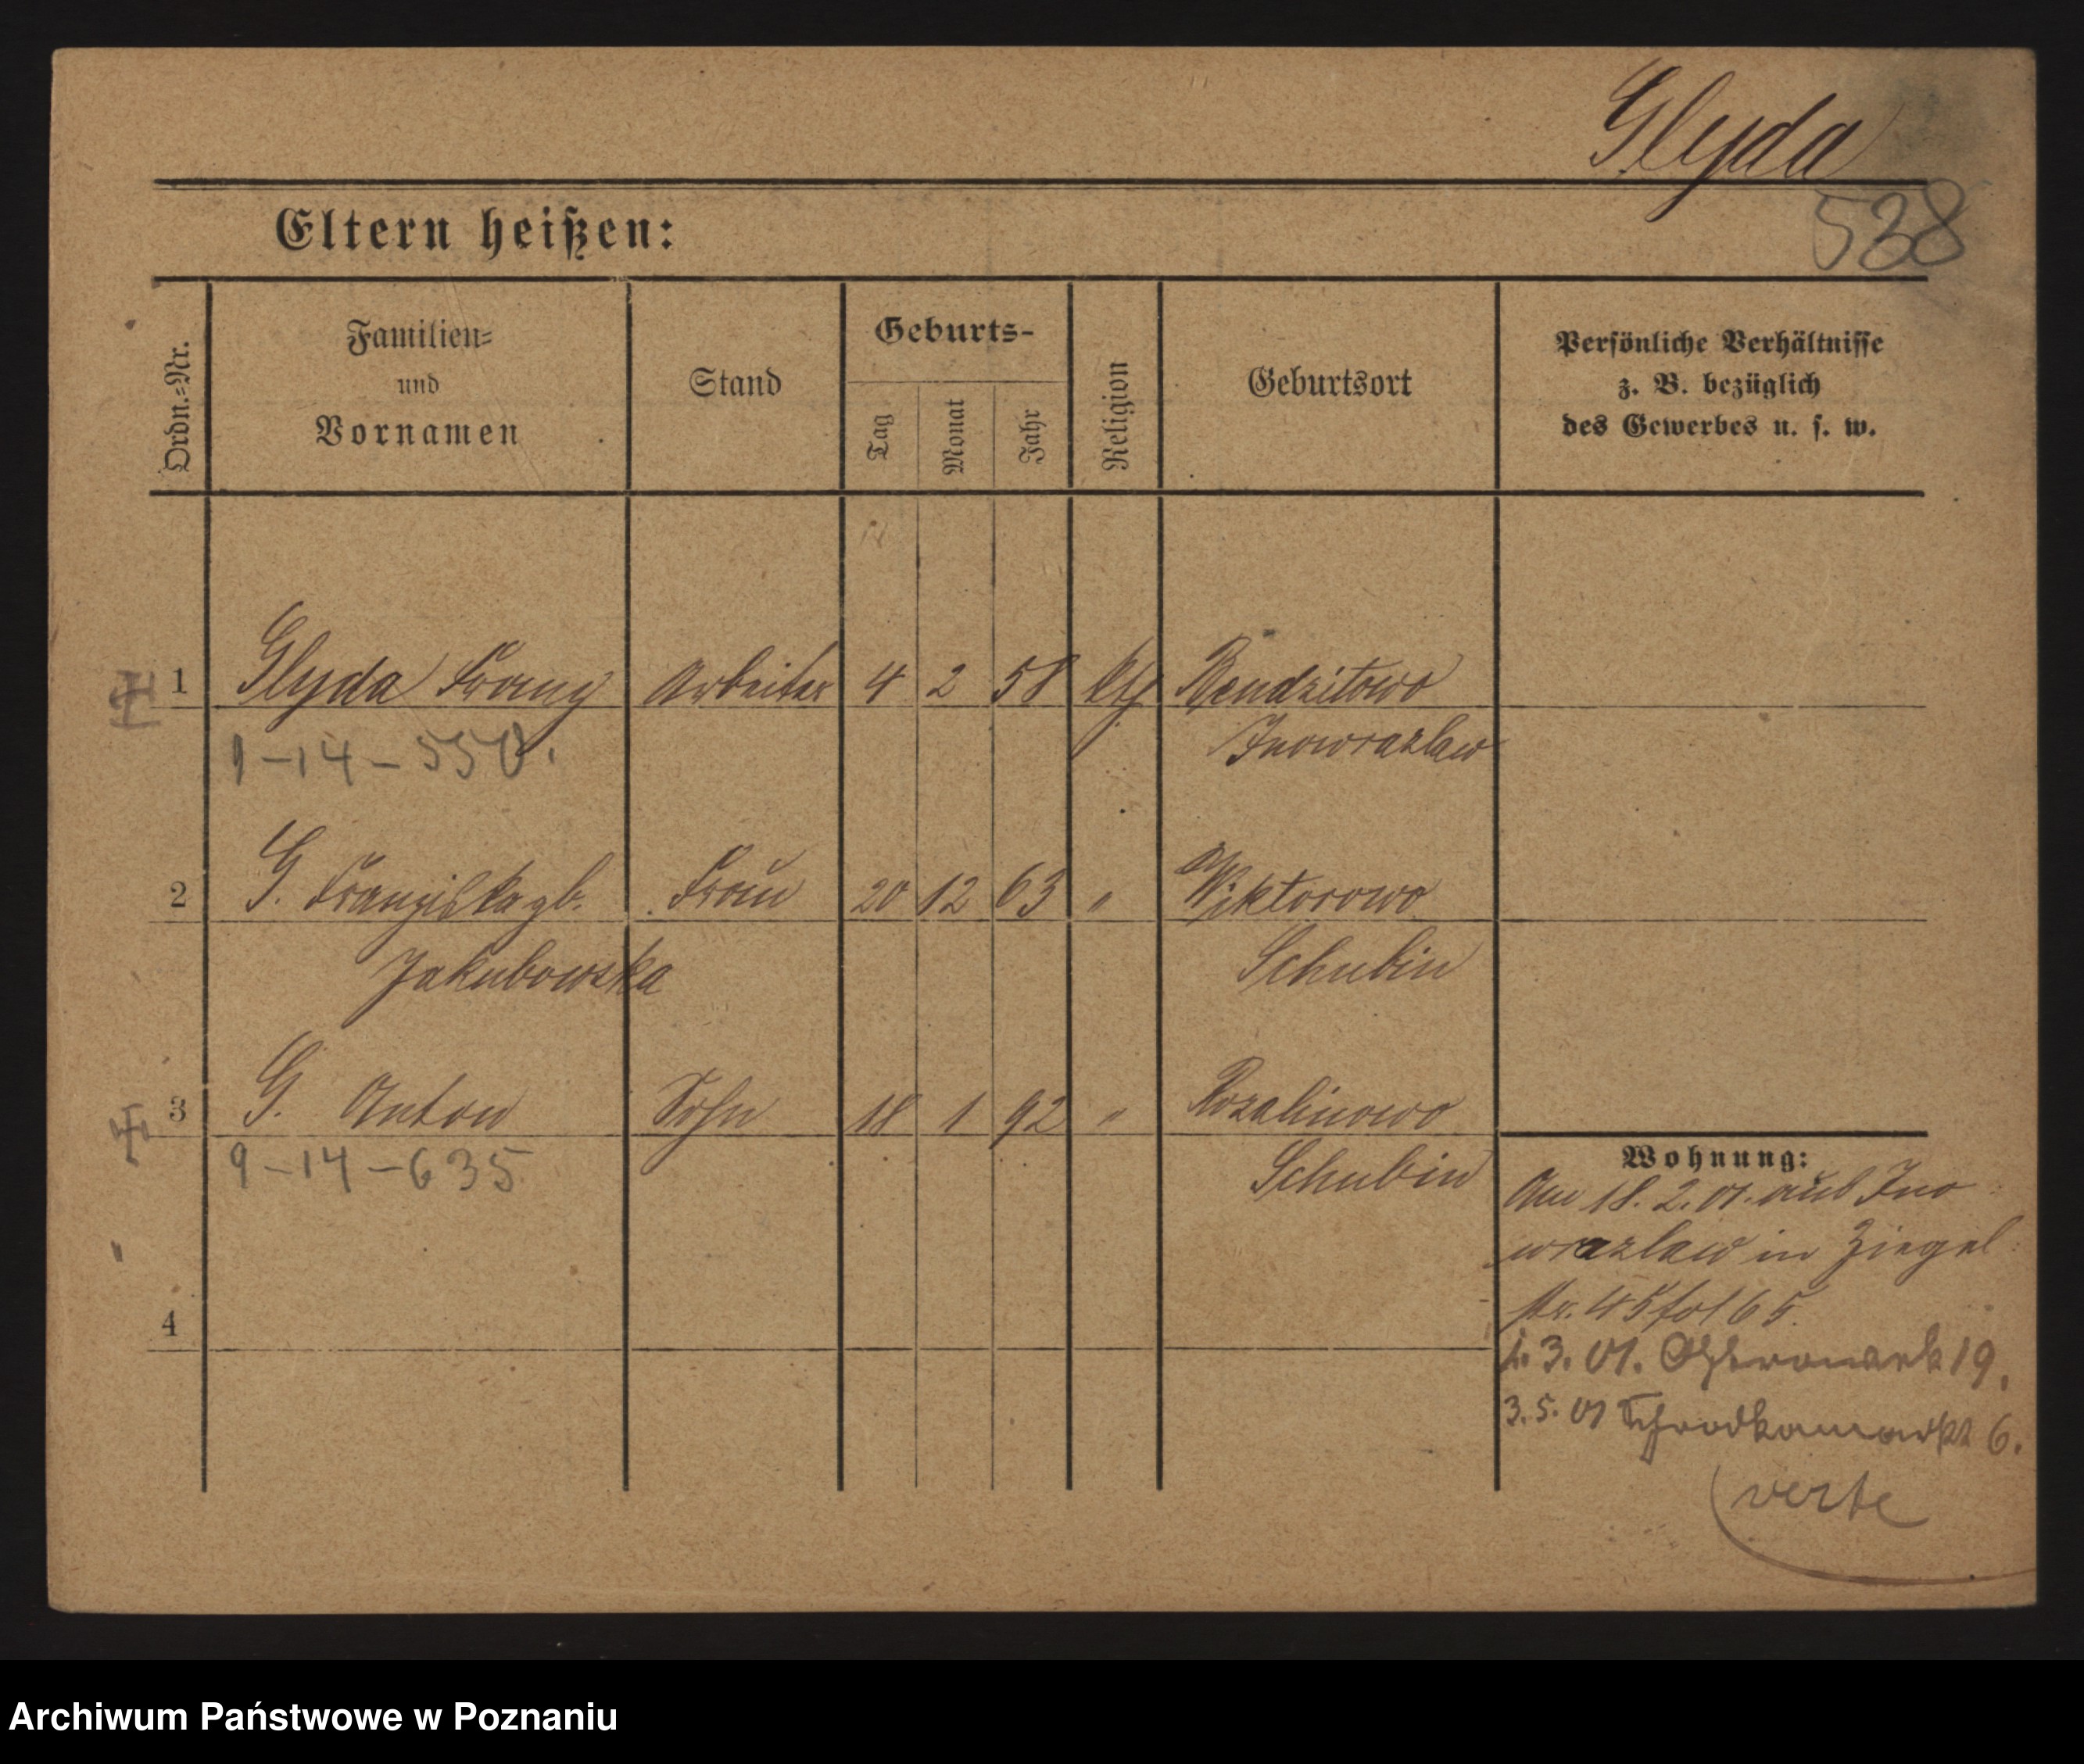 Glyda
538
Eltern heißen:
Ordn.-Nr.
Familien-
und
Vornamen
Stand
Geburts-
Tag
Monat
Jahr
Religion
Geburtsort
Persönliche Verhältnisse
z. B. bezüglich
des Gewerbes u. s. w.
1 Glyda Franz Arbeiter 4 2 58 kth Rendzitowo
Inowrazlaw
9-14-550.
2 G. Franziska gb. Frau 20 12 63 " Wiktorowo
Jakubowska Schubin
3 G. Anton Sohn 18 1 92 " Rozalinowo
9-14-635 Schubin
4
Wohnung:
Am 18. 2. 01. aus Ino
wrazlaw in Ziegel
str. 45 fol 65.
3. 01. 19.
3. 5. 01 Schrodkamarkt 6.
verte
Archiwum Państwowe w Poznaniu